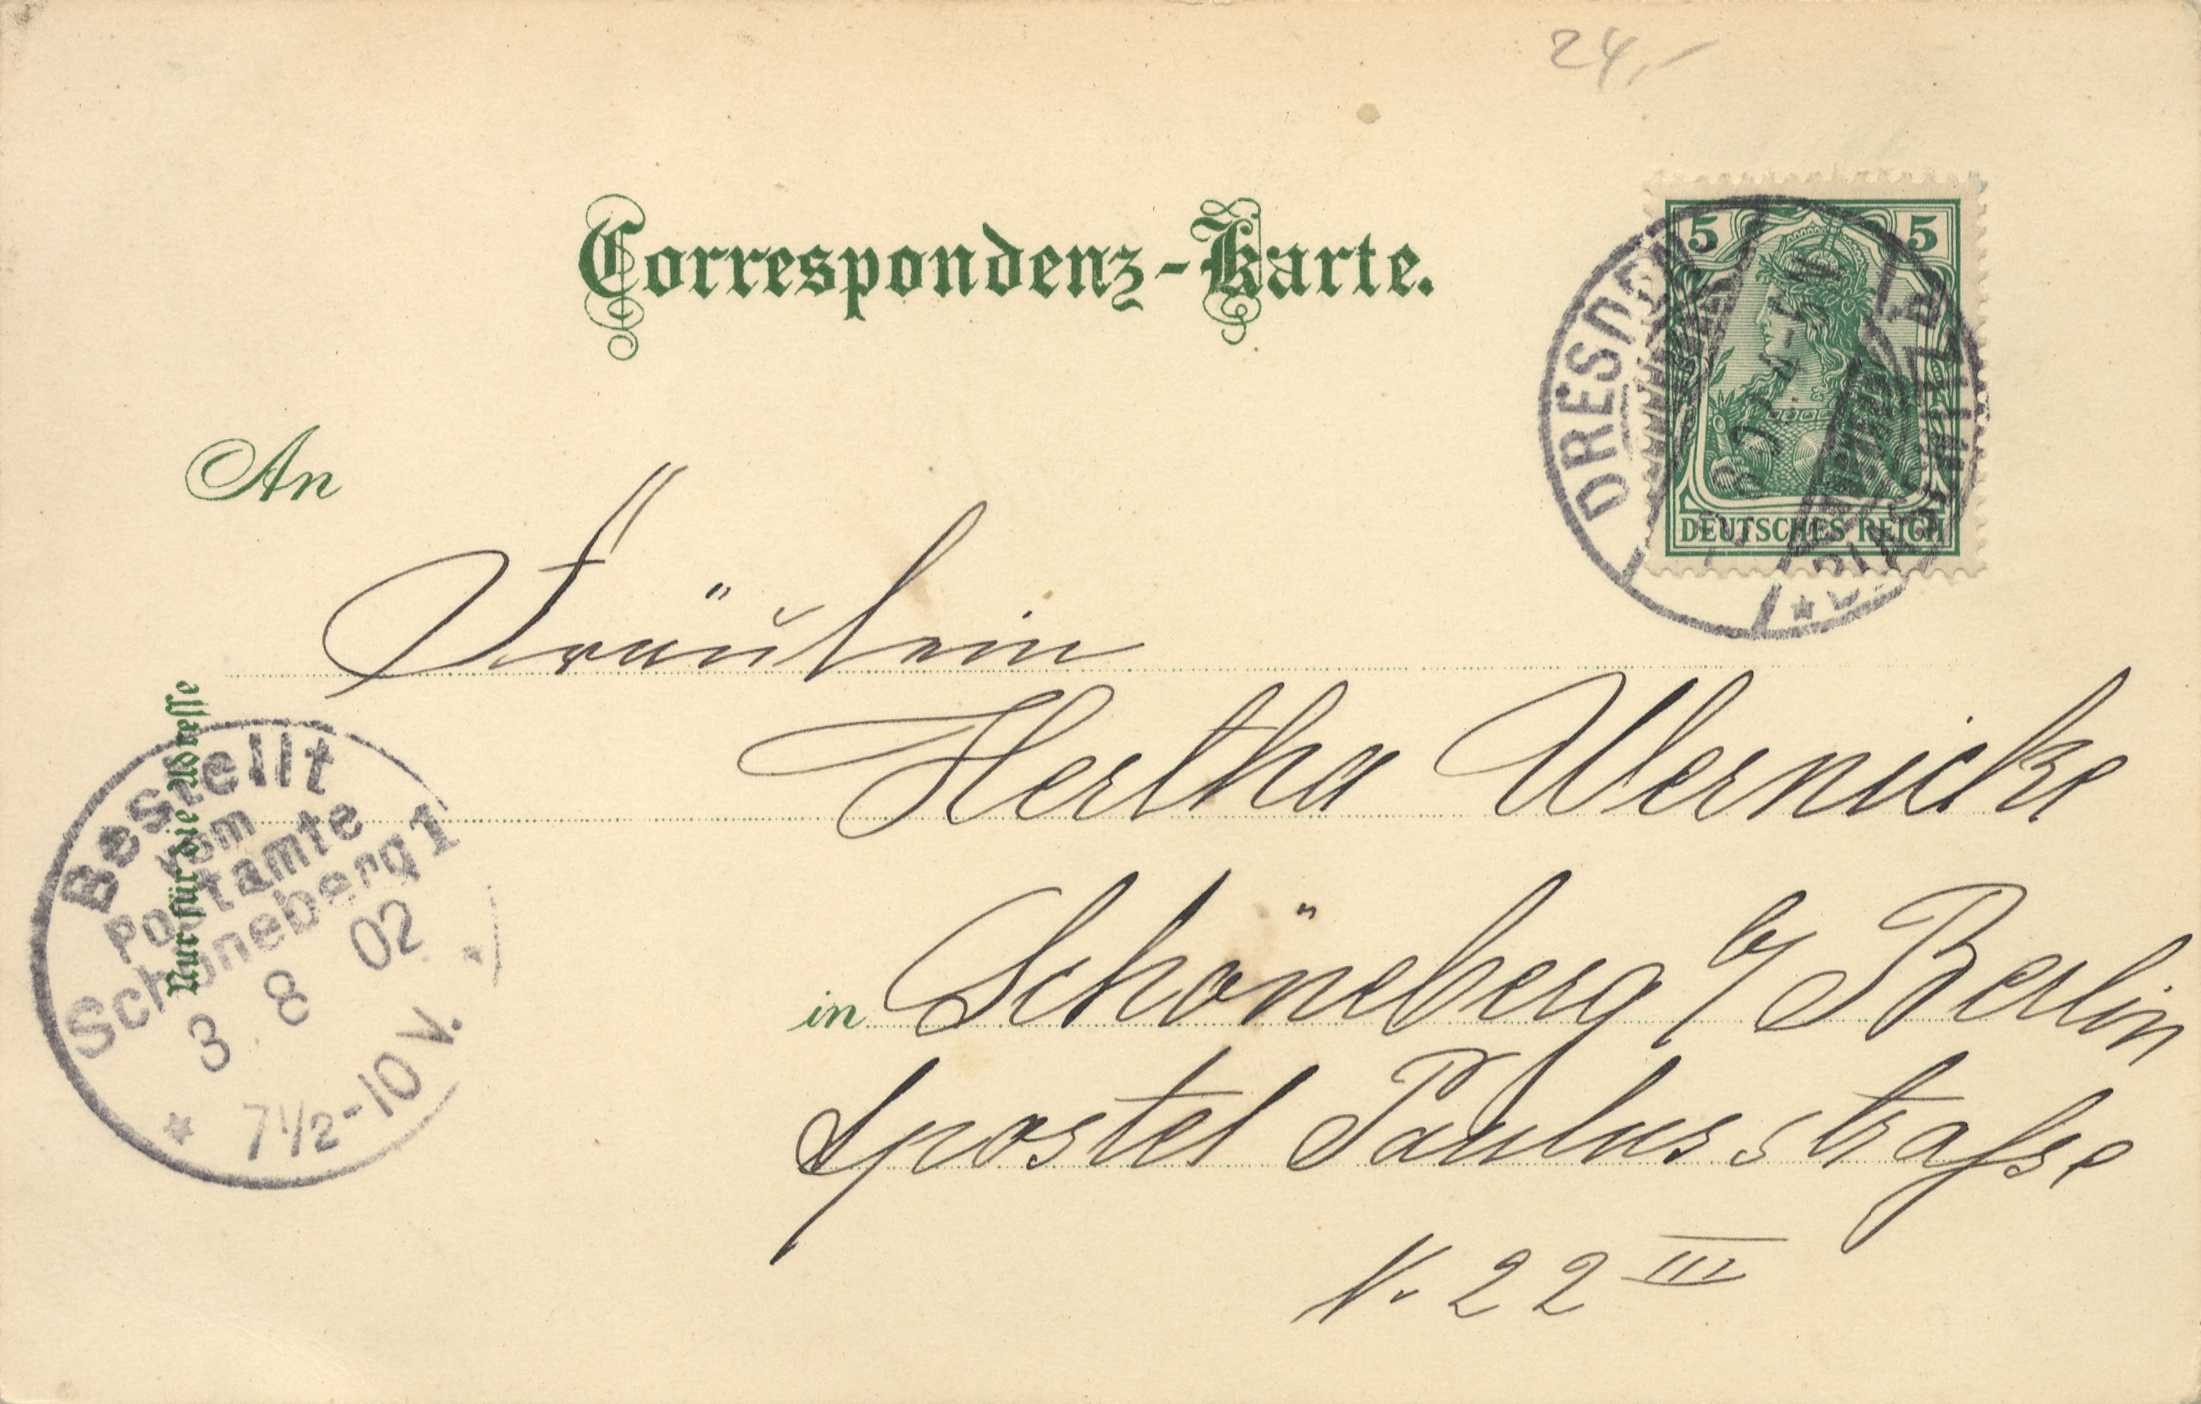 24,-
Correspondenz-Karte.
5 5
DEUTSCHES REICH
DRESDEN
An
Fräulein
Hertha Wernicke
in Schöneberg b/ Berlin
Apostel Paulusstrasse
N. 22 III
Nur für die Adresse
Bestellt
vom
Postamte
Schöneberg 1
3 8 02
7 1/2-10 V.